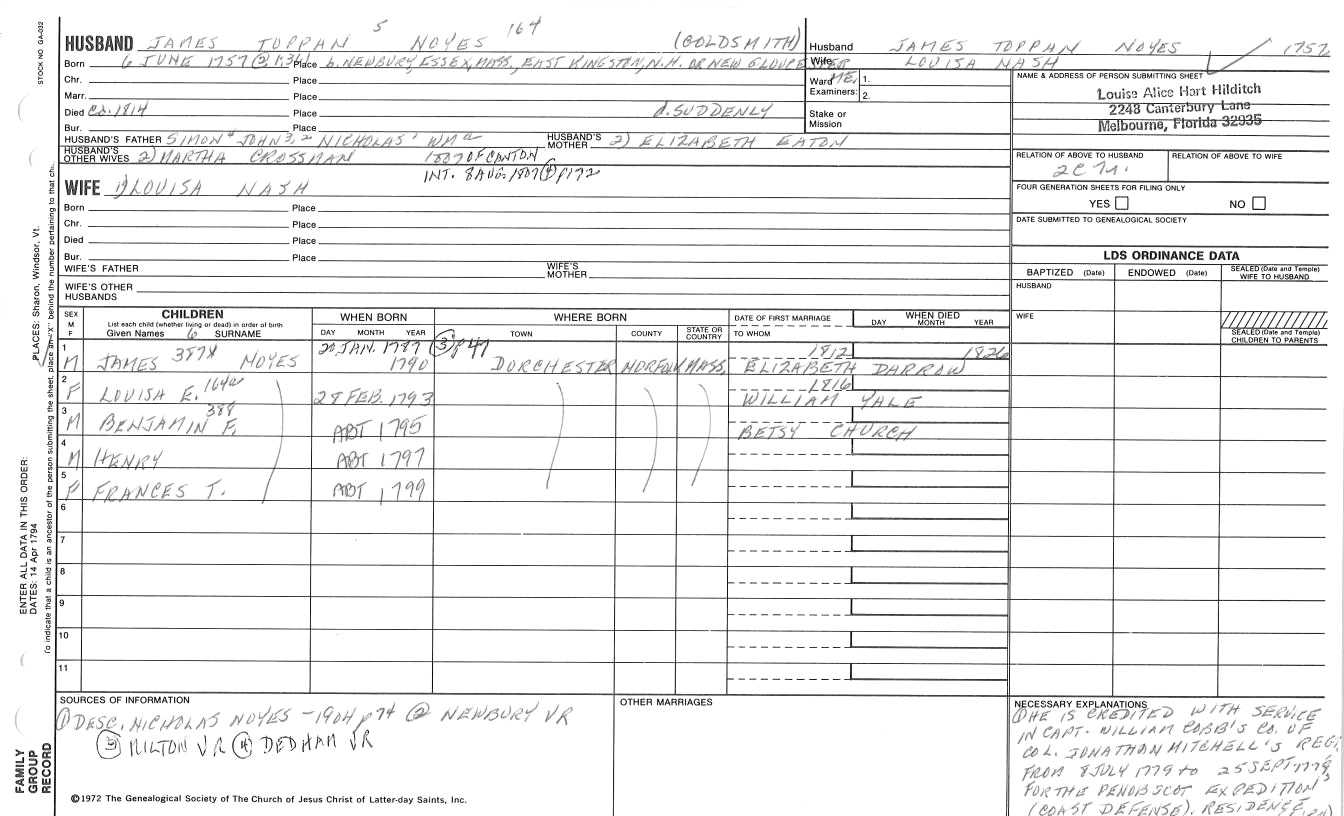 STOCK NO. GA-032
5 164
HUSBAND JAMES TOPPAN NOYES (GOLDSMITH)
Born 6 JUNE 1757 Place b. NEWBURY, ESSEX, MASS., EAST KINGSTON, N.H. OR NEW GLOUCESTER ME.
Chr. Place
Marr. Place
Died Ca. 1814 Place d. SUDDENLY
Bur. Place
HUSBAND'S FATHER SIMON4 JOHN3, 2 NICHOLAS1 WMa HUSBAND'S MOTHER 2) ELIZABETH EATON
HUSBAND'S OTHER WIVES 2) MARTHA CROSSMAN 1807 OF CANTON
INT. 8 AUG. 1807 (4) p172
WIFE 1) LOUISA NASH
Born Place
Chr. Place
Died Place
Bur. Place
WIFE'S FATHER WIFE'S MOTHER
WIFE'S OTHER HUSBANDS
Husband JAMES TOPPAN NOYES 1757
Wife LOUISA NASH
Ward 1.
Examiners: 2.
Stake or Mission
NAME & ADDRESS OF PERSON SUBMITTING SHEET
Louise Alice Hart Hilditch
2248 Canterbury Lane
Melbourne, Florida 32935
RELATION OF ABOVE TO HUSBAND RELATION OF ABOVE TO WIFE
FOUR GENERATION SHEETS FOR FILING ONLY
YES NO
DATE SUBMITTED TO GENEALOGICAL SOCIETY
LDS ORDINANCE DATA
BAPTIZED (Date) ENDOWED (Date) SEALED (Date and Temple) WIFE TO HUSBAND
HUSBAND
WIFE
SEALED (Date and Temple) CHILDREN TO PARENTS
SEX M F CHILDREN WHEN BORN WHERE BORN DATE OF FIRST MARRIAGE WHEN DIED
List each child (whether living or dead) in order of birth
Given Names 6 SURNAME DAY MONTH YEAR TOWN COUNTY STATE OR COUNTRY TO WHOM DAY MONTH YEAR
1 20 JAN. 1787 (3) p47 1812 1826
M JAMES 387a NOYES 1790 DORCHESTER NORFOLK MASS. ELIZABETH DARROW
2 1816
F LOUISA E. 164a 28 FEB. 1793 WILLIAM YALE
3
M BENJAMIN F. 388 ABT 1795 BETSY CHURCH
4
M HENRY ABT 1797
5
F FRANCES T. ABT 1799
6
7
8
9
10
11
SOURCES OF INFORMATION
(1) DESC. NICHOLAS NOYES - 1904 p74 (2) NEWBURY VR
(3) MILTON VR (4) DEDHAM VR
OTHER MARRIAGES
NECESSARY EXPLANATIONS
(1) HE IS CREDITED WITH SERVICE
IN CAPT. WILLIAM COBB'S CO. OF
COL. JONATHAN MITCHELL'S REG.
FROM 8 JULY 1779 to 25 SEPT 1779,
FOR THE PENOBSCOT EXPEDITION
(COAST DEFENSE). RESIDENCE
©1972 The Genealogical Society of The Church of Jesus Christ of Latter-day Saints, Inc.
PLACES: Sharon, Windsor, Vt.
To indicate that a child is an ancestor of the person submitting the sheet, place an "X" behind the number pertaining to that ch.
ENTER ALL DATA IN THIS ORDER:
DATES: 14 Apr 1794
FAMILY
GROUP
RECORD